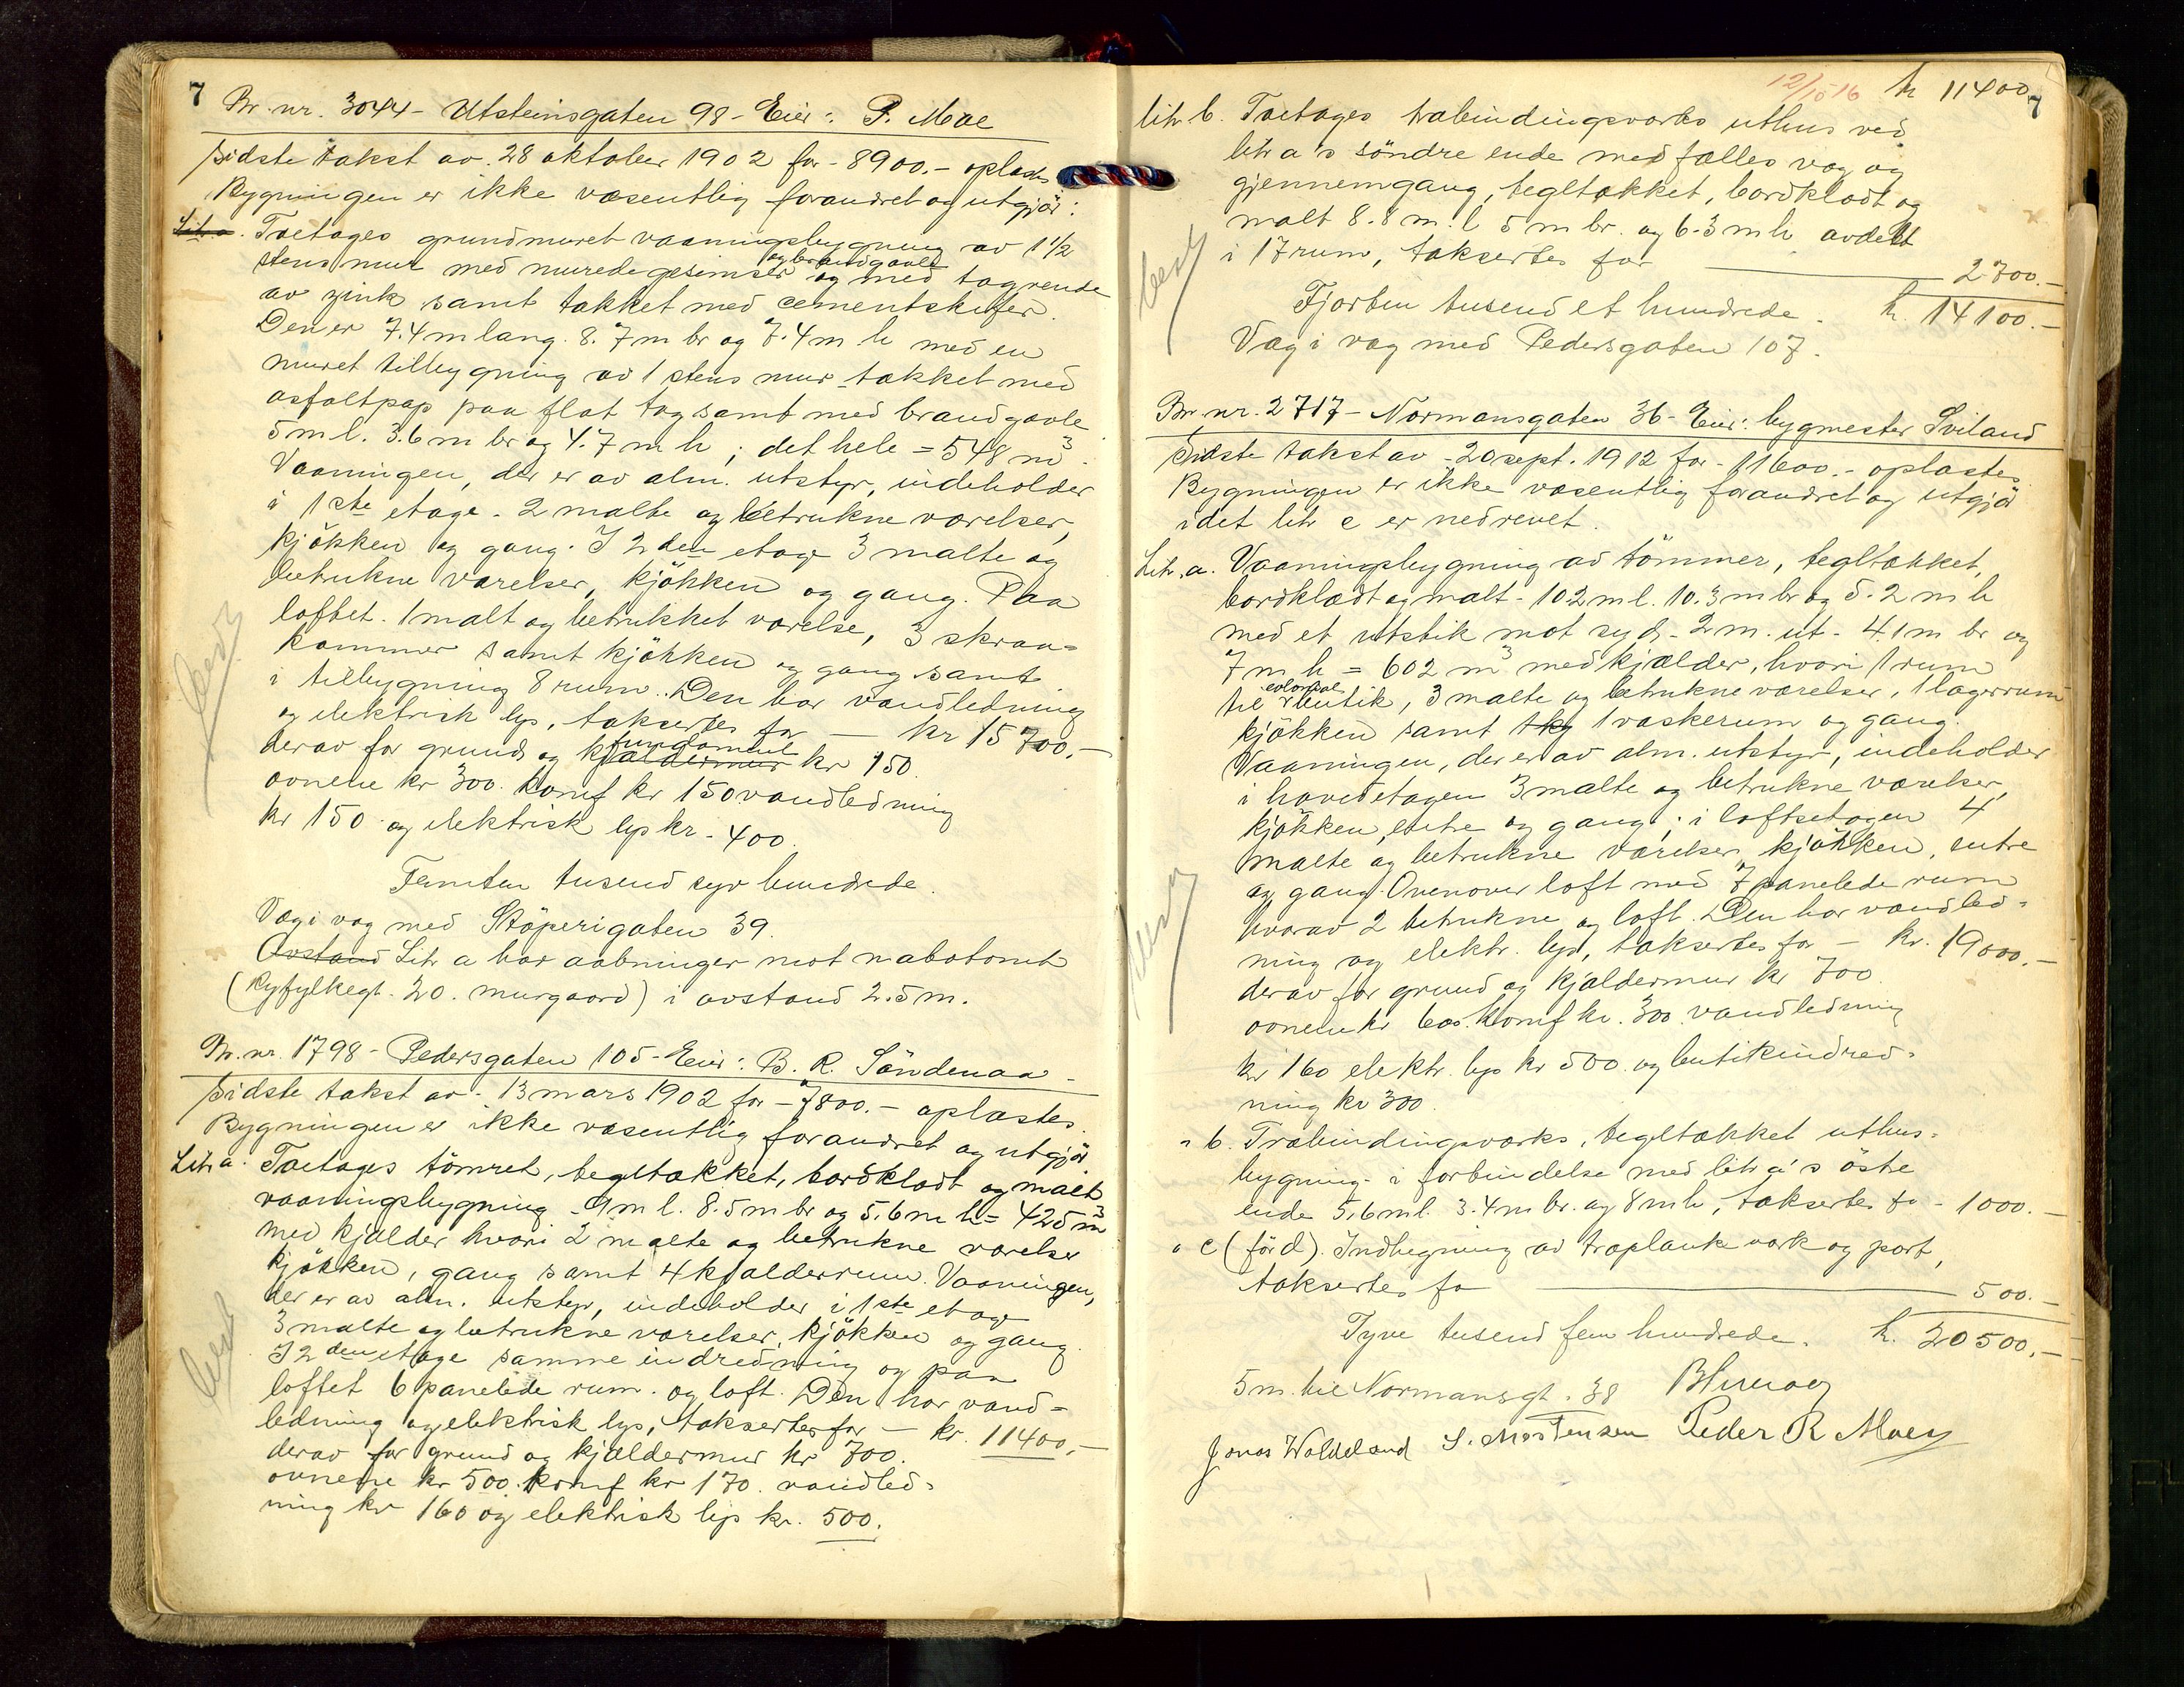 7
Br. nr. 3044 - Utsteinsgaten 98 - Eier: P. Moe
Sidste takst av 28 oktober 1902 for - 8900.- oplæstes
Bygningen er ikke væsentlig forandret og utgjör:
Litr a. Toetages grundmuret vaaningsbygning av 1 1/2
og brandgavle
stens mur med murede gesimser og med tagrende
av zink samt tækket med cementskifer.
Den er 7.4 m lang. 8.7 m br og 7.4 m h med en
muret tilbygning av 1 stens mur tækket med
asfaltpap paa flat tag samt med brandgavle
5 m l. 3.6 m br og 4.7 m h; det hele = 548 m3.
Vaaningen, der er av alm. utstyr, indeholder
i 1ste etage - 2 malte og betrukne værelser,
kjökken og gang. I 2den etage 3 malte og
betrukne værelser, kjökken og gang. Paa
loftet. 1 malt og betrukket værelse, 3 skraa=
kammer samt kjökken og gang samt
i tilbygning 8 rum. Den har vandledning
og elektrisk lys, takseres for — kr 15700.-
fundament
derav for grund og kjældermur kr 150.
ovnene kr 300. komf kr 150 vandledning
kr 150 og elektrisk lys kr. 400.
Femten tusend syv hundrede.
Væg i væg med Stöperigaten 39.
Avstand Litr a har aabninger mot nabotomt
(Ryfylkegt. 20. murgaard) i avstand 2.5 m.
Br. nr. 1798 - Pedersgaten 105 - Eier: B. R. Söndenaa.
Sidste takst av - 13 mars 1902 for - 7800.- oplæstes.
Bygningen er ikke væsentlig forandret og utgjör
Litr a. Toetages tömret, tegltækket, bordklædt og malt
vaaningsbygning - 9 m l. 8.5 m br og 5.6 m h = 425 m3
med kjælder hvori 2 malte og betrukne værelser
kjökken, gang samt 4 kjælderrum. Vaaningen,
der er av alm. utstyr, indeholder i 1ste etage
3 malte og betrukne værelser, kjökken og gang.
I 2den etage samme indredning og paa
loftet 6 panelede rum og loft. Den har vand=
ledning og elektrisk lys, takseres for — kr. 11400.-
derav for grund og kjældermur kr 700.
ovnene kr 500. komf kr 170. vandled=
ning kr 160 og elektrisk lys kr. 500.
12/10 16 kr 11400.
7
litr b. Toetages træbindingsværks uthus ved
litr a's söndre ende med fælles væg og
gjennemgang, tegltækket, bordklædt og
malt 8.8 m l 5 m br. og 6.3 m h avdelt
i 17 rum, takseres for — 2700.-
Fjorten tusend et hundrede. kr. 14100.-
Væg i væg med Pedersgaten 107.
Br. nr. 2717 - Normansgaten 36 - Eier: bygmester Sviland
Sidste takst av - 20 sept. 1912 for - 11600.- oplæstes
Bygningen er ikke væsentlig forandret og utgjör
idet litr c er nedrevet.
Litr. a. Vaaningsbygning av tömmer, tegltækket,
bordklædt og malt - 10.2 m l. 10.3 m br og 5.2 m h
med et utstik mot syd - 2 m. ut - 4.1 m br og
7 m h = 602 m3 med kjælder, hvori 1 rum
colonial
til butik, 3 malte og betrukne værelser, 1 lagerrum
kjökken samt 1 vaskerum og gang.
Vaaningen, der er av alm. utstyr, indeholder
i hovedetagen 3 malte og betrukne værelser,
kjökken, entre og gang; i loftsetagen 4
malte og betrukne værelser, kjökken, entre
og gang. Ovenover loft med 7 panelede rum
hvorav 2 betrukne og loft. Den har vandled=
ning og elektr. lys, takseres for — kr. 19000.-
derav for grund og kjældermur kr 700.
ovnene kr 600. komf kr. 300. vandledning
kr 160 elektr. lys kr 500. og butikindred=
ning kr 300.
" b. Træbindingsværks, tegltækket uthus=
bygning - i forbindelse med litr a's östre
ende 5.6 m l. 3.4 m br. og 8 m h, takseres for - 1000.-
" c (för d). Indhegning av træplankeværk og port,
takseres for — 500.-
Tyve tusend fem hundrede. kr. 20500.-
5 m. til Normansgt. 38
Jonas Waldeland S. Mortensen Peder R Moe